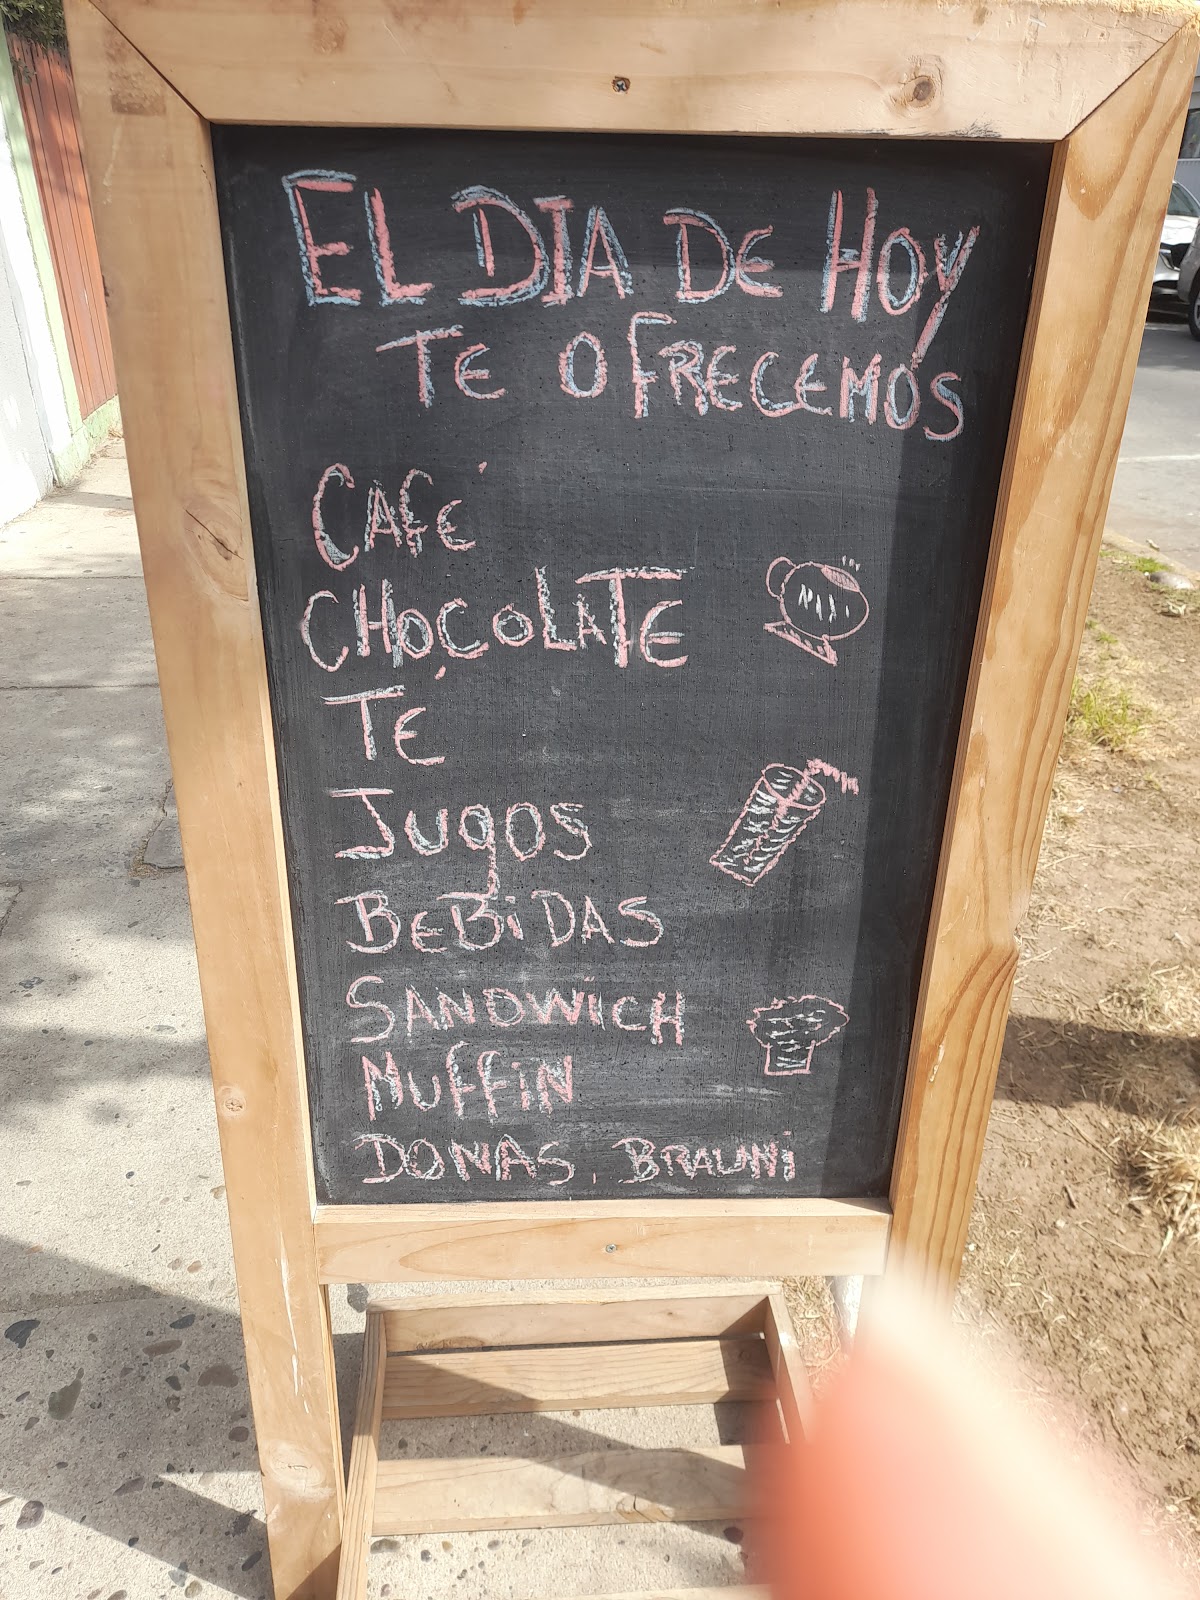 EL DIA DE HOY
TE OFRECEMOS
CAFÉ
CHOCOLATE
TÉ
JUGOS
BEBIDAS
SANDWICH
MUFFIN
DONAS, BRAUNI